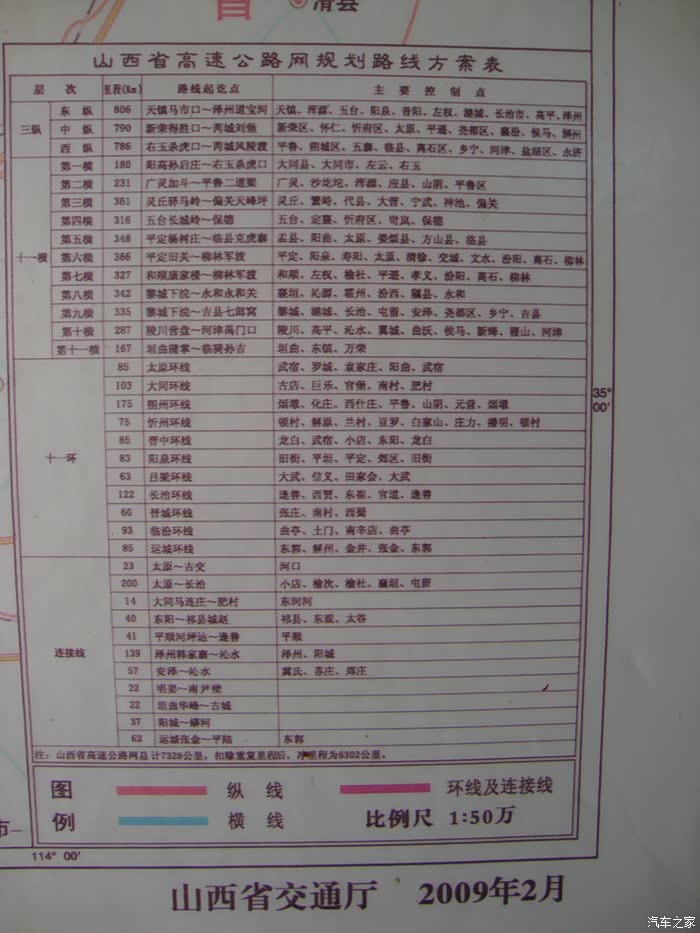 滑县
山西省高速公路网规划路线方案表
层 次 里程(Km) 路线起讫点 主 要 控 制 点
三纵
东 纵 806 天镇马市口～泽州道宝河 天镇、浑源、五台、阳泉、昔阳、左权、潞城、长治市、高平、泽州
中 纵 790 新荣得胜口～芮城刘堡 新荣区、怀仁、忻府区、太原、平遥、尧都区、襄汾、侯马、解州
西 纵 786 右玉杀虎口～芮城风陵渡 平鲁、朔城区、五寨、临县、离石区、乡宁、河津、盐湖区、永济
十一横
第一横 180 阳高孙启庄～右玉杀虎口 大同县、大同市、左云、右玉
第二横 231 广灵加斗～平鲁二道梁 广灵、沙圪坨、浑源、应县、山阴、平鲁区
第三横 361 灵丘驿马岭～偏关天峰坪 灵丘、繁峙、代县、大营、宁武、神池、偏关
第四横 316 五台长城岭～保德 五台、定襄、忻府区、岢岚、保德
第五横 348 平定杨树庄～临县克虎寨 盂县、阳曲、太原、娄烦县、方山县、临县
第六横 366 平定旧关～柳林军渡 平定、阳泉、寿阳、太原、清徐、交城、文水、汾阳、离石、柳林
第七横 327 和顺康家楼～柳林军渡 和顺、左权、榆社、平遥、孝义、汾阳、离石、柳林
第八横 342 黎城下浣～永和永和关 襄垣、沁源、霍州、汾西、隰县、永和
第九横 335 黎城下浣～吉县七郎窝 黎城、潞城、长治、屯留、安泽、尧都区、乡宁、吉县
第十横 287 陵川营盘～河津禹门口 陵川、高平、沁水、翼城、曲沃、侯马、新绛、稷山、河津
第十一横 167 垣曲蒲掌～临猗孙吉 垣曲、东镇、万荣
十一环
85 太原环线 武宿、罗城、袁家庄、阳曲、武宿
103 大同环线 古店、巨乐、官堡、南村、肥村
175 朔州环线 烟墩、化庄、西什庄、平鲁、山阴、元营、烟墩
75 忻州环线 顿村、解原、兰村、豆罗、白家山、庄力、播明、顿村
85 晋中环线 龙白、武宿、小店、东阳、龙白
83 阳泉环线 旧街、平坦、平定、郊区、旧街
63 吕梁环线 大武、信义、田家会、大武
122 长治环线 逢善、西贾、东崔、官道、逢善
60 晋城环线 张庄、南村、西蜀
93 临汾环线 曲亭、土门、南辛店、曲亭
85 运城环线 东郭、解州、金井、张金、东郭
连接线
23 太原～古交 河口
200 太原～长治 小店、榆次、榆社、襄垣、屯留
14 大同马连庄～肥村 东河河
40 东阳～祁县城赵 祁县、东观、太谷
41 平顺河坪辿～逢善 平顺
139 泽州韩家寨～沁水 泽州、阳城
57 安泽～沁水 冀氏、苏庄、郑庄
22 明姜～南尹壁
22 垣曲华峰～古城
37 阳城～蟒河
62 运城张金～平陆 东郭
注：山西省高速公路网总计7328公里，扣除重复里程后，净里程为6302公里。
图 纵 线 环线及连接线
例 横 线 比例尺 1:50万
35°
00′
市
114° 00′
山西省交通厅 2009年2月
汽车之家